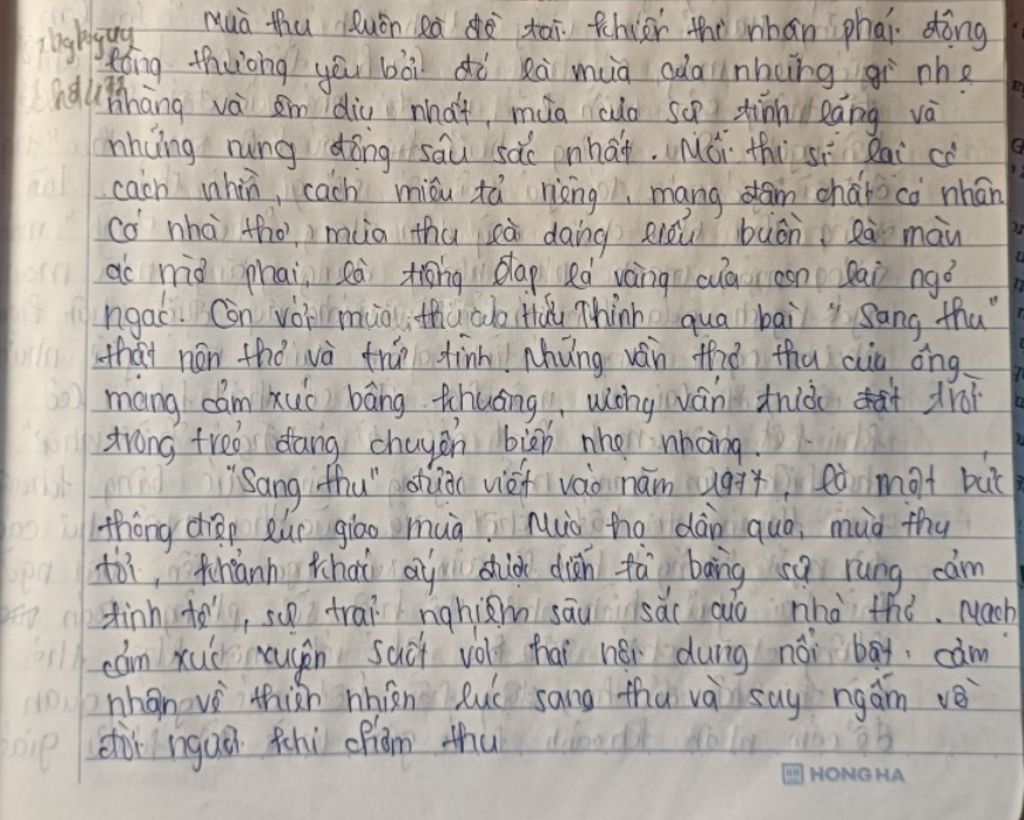 Mùa thu luôn là đề tài khiến thi nhân phải động
lòng thương yêu bởi đó là mùa của những gì nhẹ
nhàng và êm dịu nhất, mùa của sự tĩnh lặng và
những rung động sâu sắc nhất. Mỗi thi sĩ lại có
cách nhìn, cách miêu tả riêng, mang đậm chất cá nhân
Có nhà thơ, mùa thu là dáng liễu buồn, là màu
áo mờ phai, là tiếng đạp lá vàng của con nai ngơ
ngác. Còn với mùa thu của Hữu Thỉnh qua bài "Sang thu"
thật nên thơ và trữ tình. Những vần thơ thu của ông
mang cảm xúc bâng khuâng, vương vấn trước đất trời
trong trẻo đang chuyển biến nhẹ nhàng.
"Sang thu" được viết vào năm 1977, là một bức
thông điệp lúc giao mùa. Mùa hạ dần qua, mùa thu
tới, khoảnh khắc ấy được diễn tả bằng sự rung cảm
tinh tế, sự trải nghiệm sâu sắc của nhà thơ. Mạch
cảm xúc xuyên suốt với hai nội dung nổi bật: cảm
nhận về thiên nhiên lúc sang thu và suy ngẫm về
đời người khi chớm thu
HONG HA